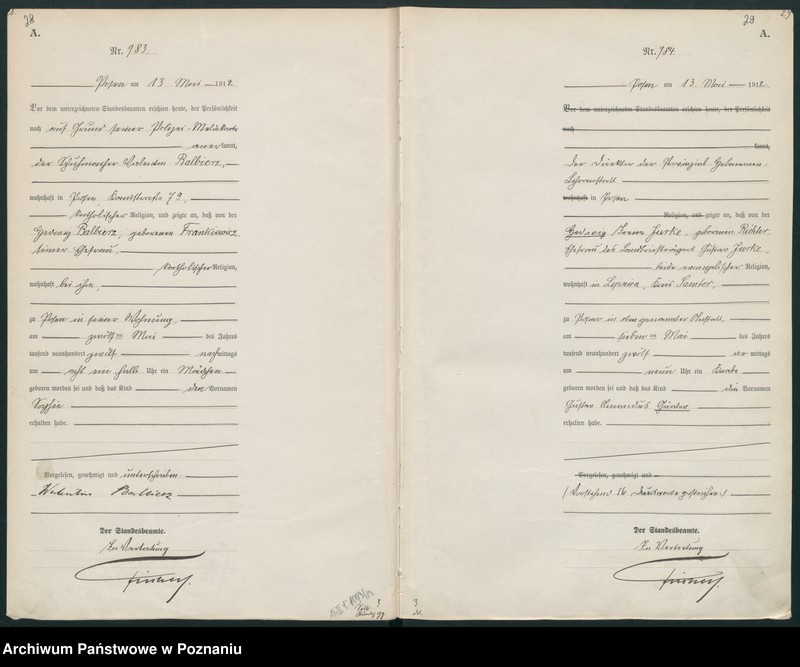 28
A.
Nr. 783.
Posen am 13 Mai 1912.
Vor dem unterzeichneten Standesbeamten erschien heute, der Persönlichkeit
nach auf Grund seiner Polizei-Melde
anerkannt,
der Schuhmacher Valentin Balbierz,
wohnhaft in Posen,
katholischer Religion, und zeigte an, daß von der
Hedwig Balbierz, geborenen Frankiewicz,
seiner Ehefrau,
katholischer Religion,
wohnhaft bei ihm,
zu Posen in seiner Wohnung,
am zwölften Mai des Jahres
tausend neunhundert zwölf nachmittags
um acht ein halb Uhr ein Mädchen
geboren worden sei und daß das Kind den Vornamen
Sophie
erhalten habe.
Vorgelesen, genehmigt und unterschrieben.
Walentin Balbierz
Der Standesbeamte.
In Vertretung
29
A.
Nr. 784
Posen am 13 Mai 1912
Vor dem unterzeichneten Standesbeamten erschien heute, der Persönlichkeit
nach
kannt,
Der Direktor der Provinzial-Hebammen-
Lehranstalt
wohnhaft in Posen
Religion, und zeigte an, daß von der
Jurke, geborenen Richter,
Ehefrau des Gustav Jurke,
beide evangelischer Religion,
wohnhaft in Lipnica, Kreis Samter,
zu Posen in der genannten Anstalt
am sieben ten Mai des Jahres
tausend neunhundert zwölf vor mittags
um neun Uhr ein Knabe
geboren worden sei und daß das Kind die Vornamen
Gustav Amandus Günter
erhalten habe.
Vorgelesen, genehmigt und
(Vorstehend 16 Druckworte gestrichen)
Der Standesbeamte.
In Vertretung
Archiwum Państwowe w Poznaniu